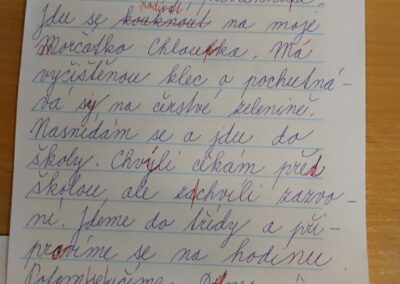 podívat
Jdu se kouknout na moje
Morčátko Chloupka. Má
vyčištěnou klec a pochutná-
vá si na čerstvé zelenině.
Nasnídám se a jdu do
školy. Chvíli čkám před
školou ale zachvíli zazvo-
ní. Jdeme do třídy a při-
pravíme se na hodinu.